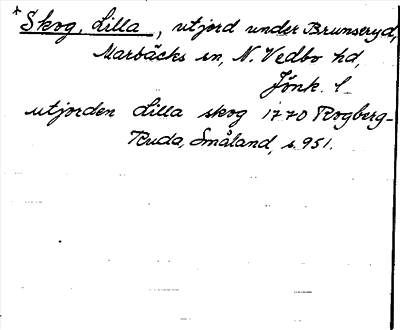 *Skog, Lilla, utjord under Brunseryd,
Marbäcks sn, N. Vedbo hd,
Jönk. l
utjorden Lilla skog 1770 Rogberg-
Ruda, Småland, s. 951.